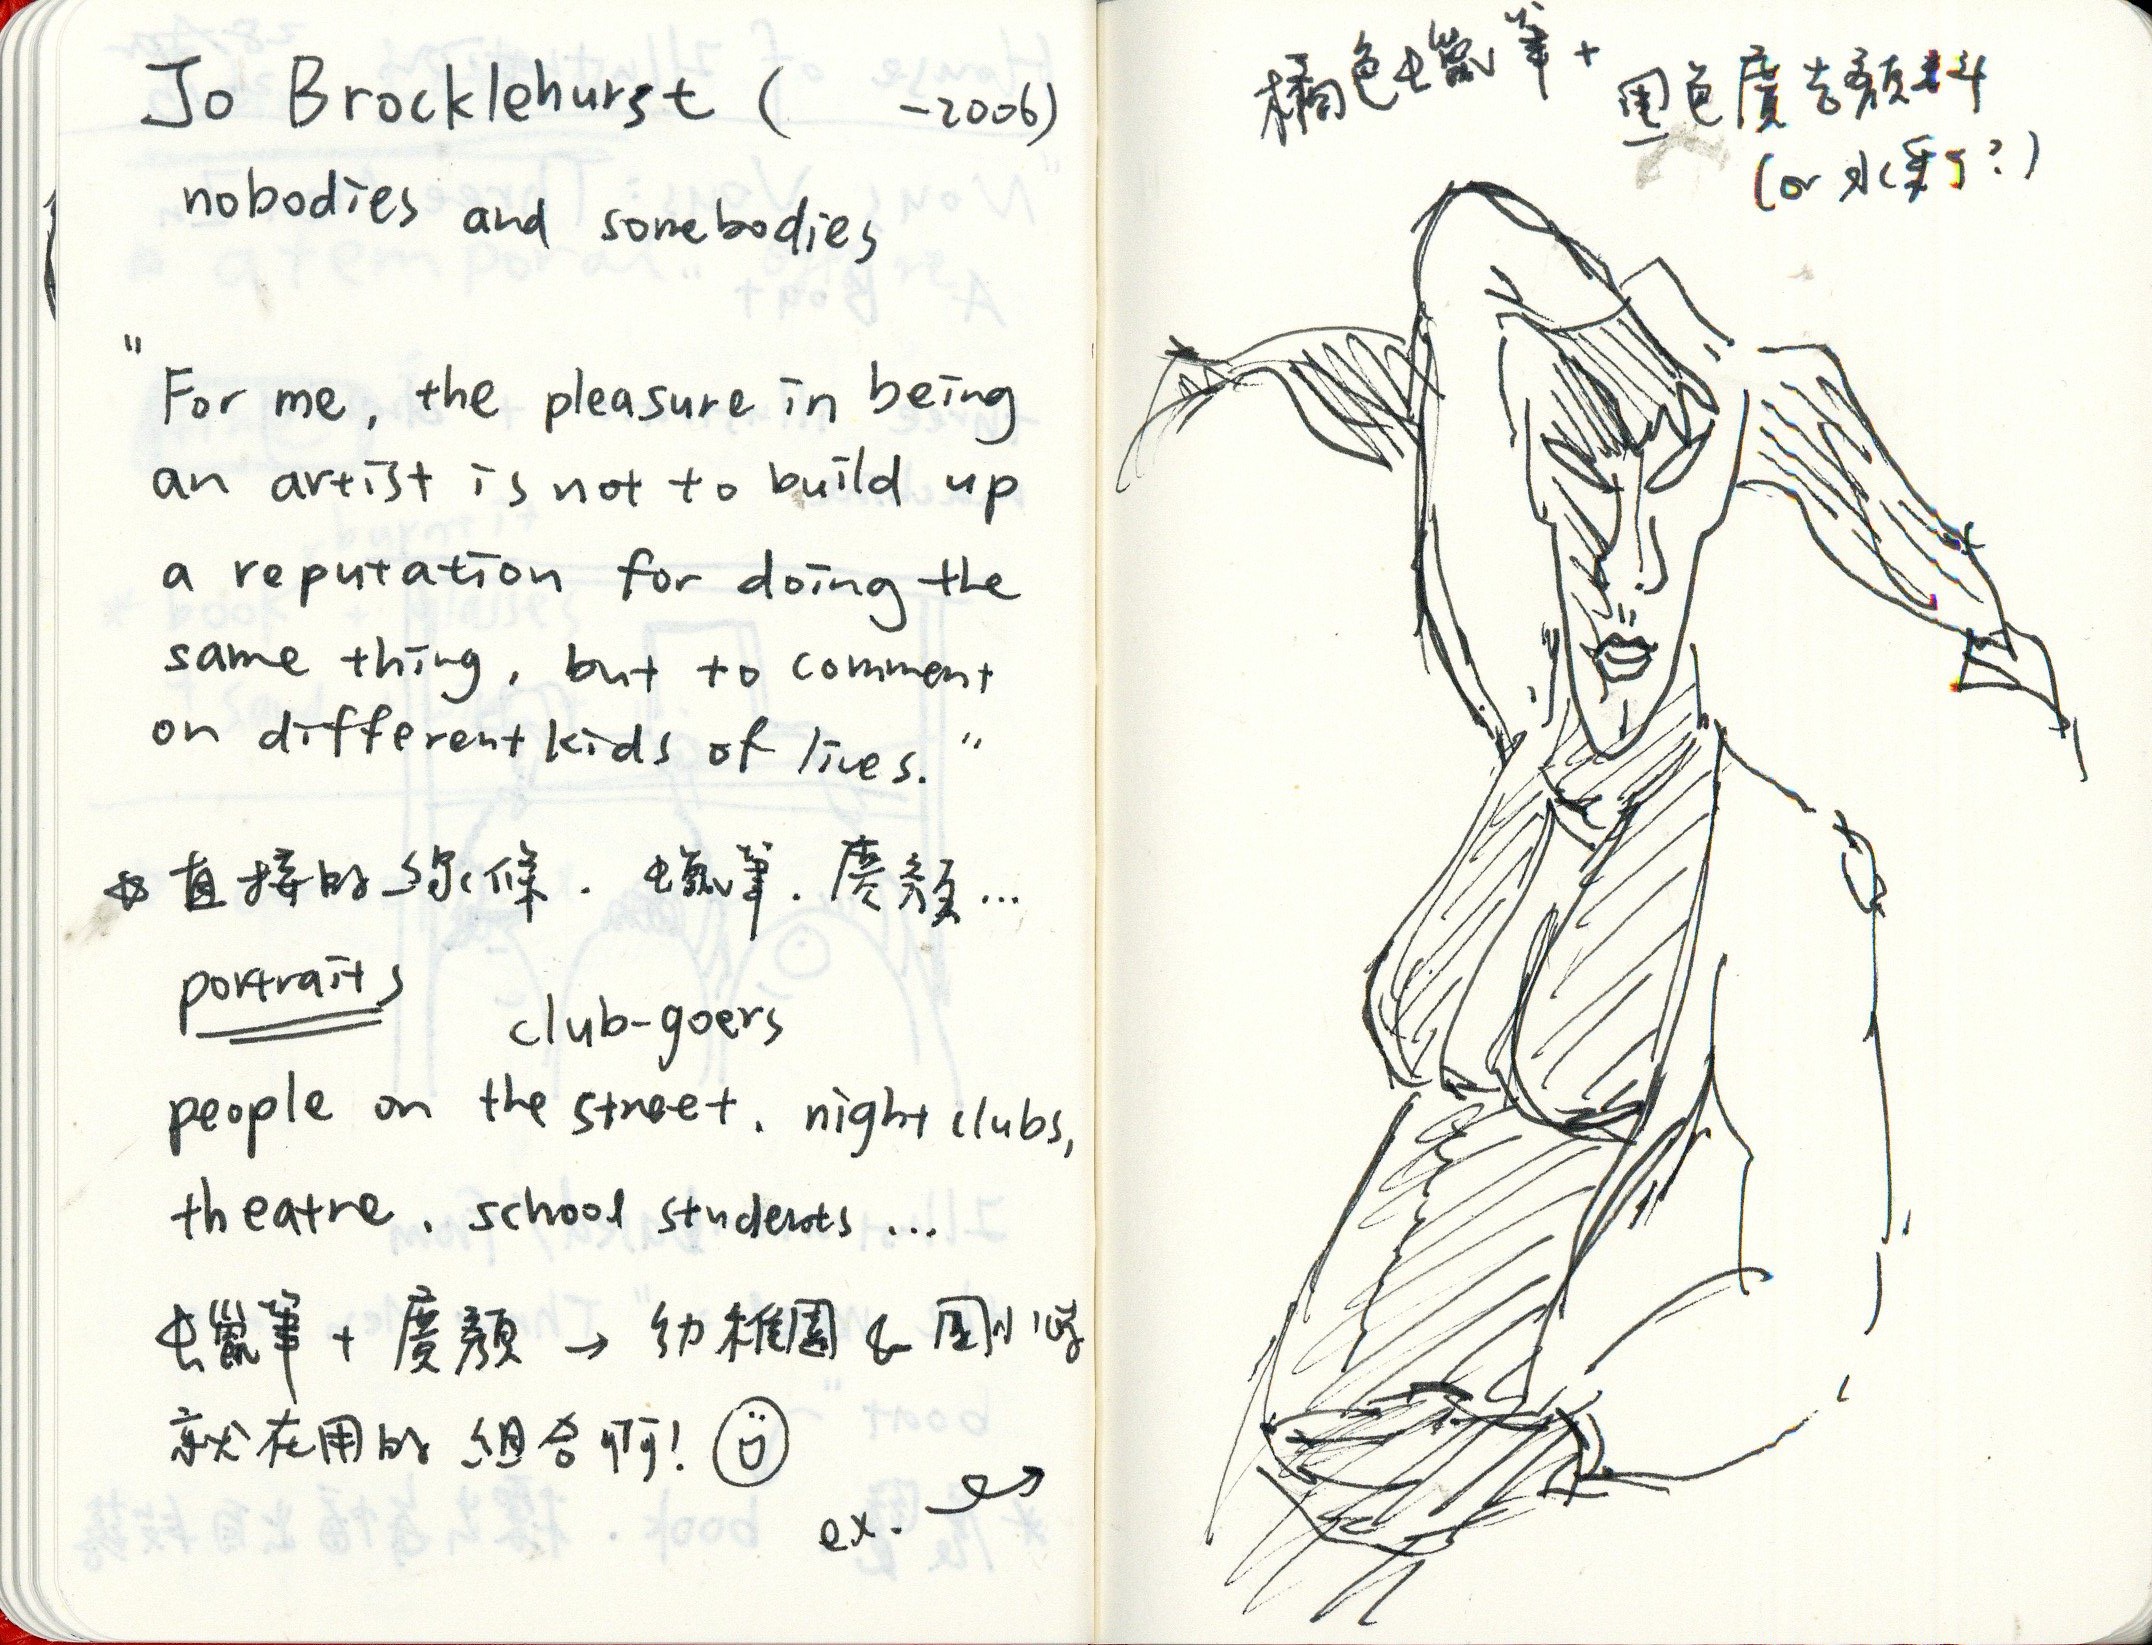 Jo Brocklehurst ( -2006)
nobodies and somebodies
"For me, the pleasure in being
an artist is not to build up
a reputation for doing the
same thing, but to comment
on different kids of lives."
* 直接的線條. 蠟筆. 廣顏...
portraits
club-goers
people on the street. night clubs,
theatre. school students...
蠟筆 + 廣顏 → 幼稚園 & 國小時
就在用的 組合啊!
ex.
橘色蠟筆 +
黑色廣告顏料
(or 水彩?)